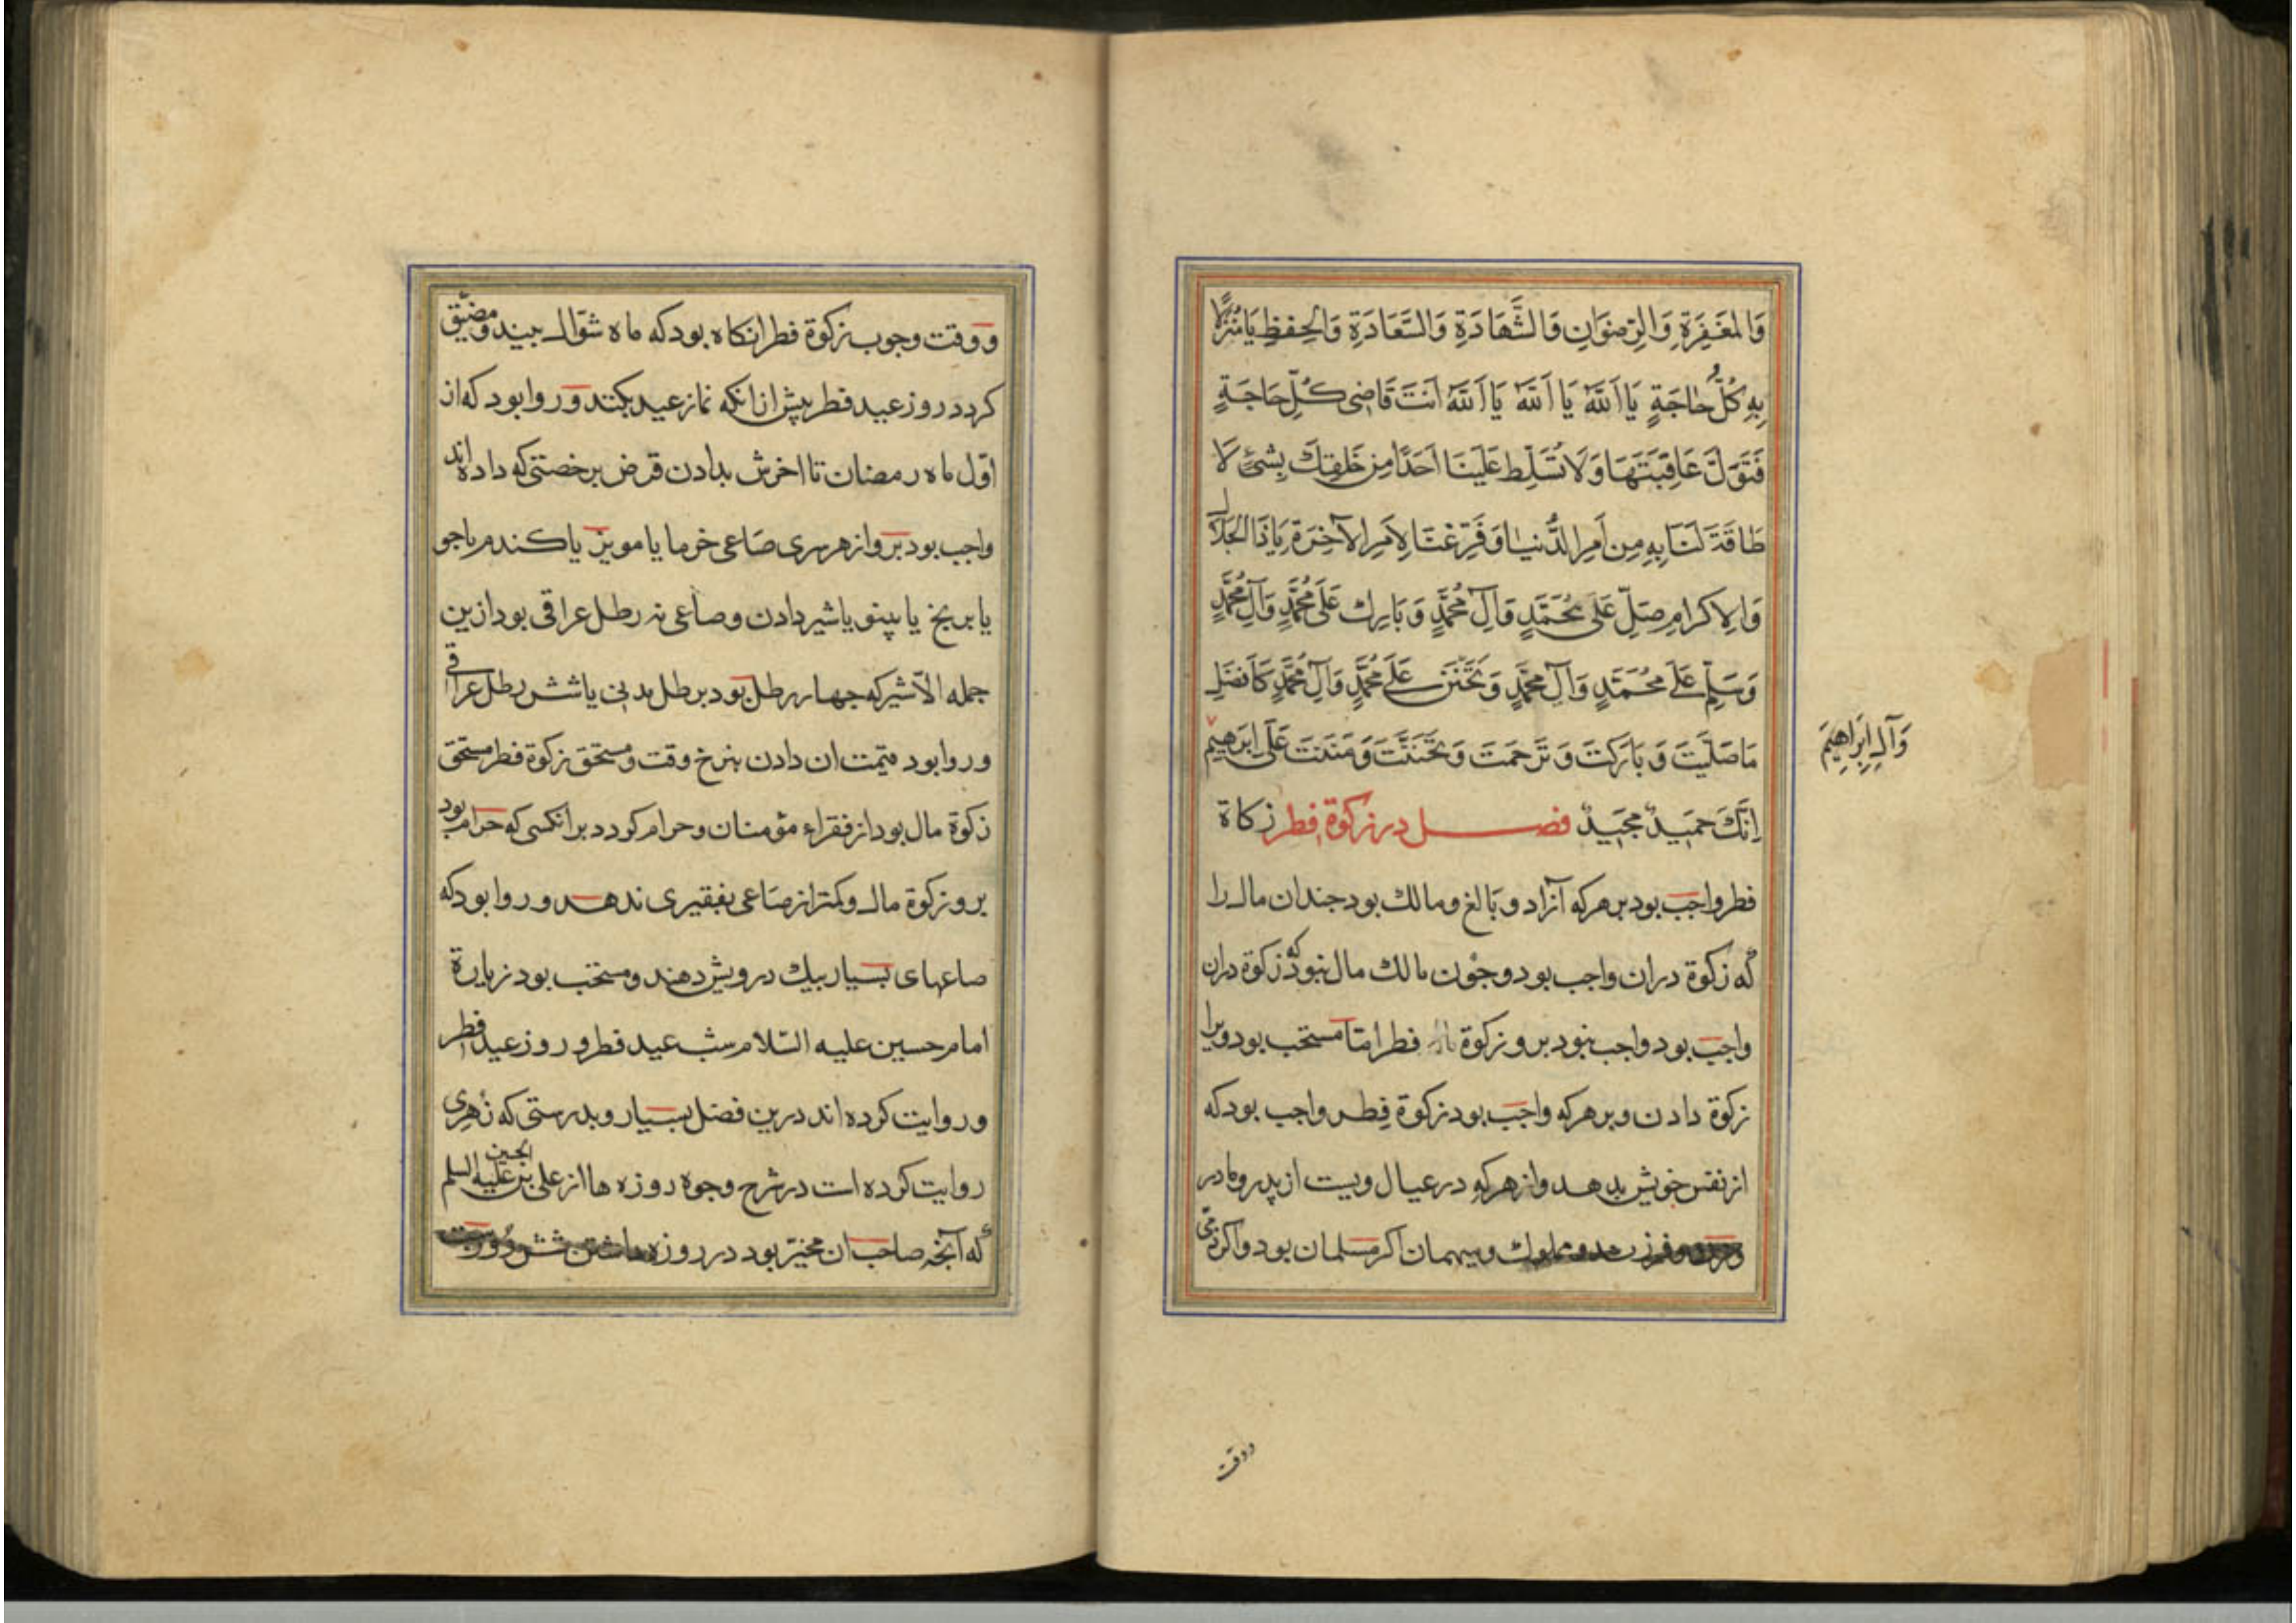 وَالْمَغْفِرَةِ وَالرِّضْوَانِ وَالشَّهَادَةِ وَالسَّعَادَةِ وَالْحِفْظِ يَا مُنْزَلًا
بِهِ كُلُّ حَاجَةٍ يَا اَللَّهُ يَا اَللَّهُ يَا اَللَّهُ اَنْتَ قَاضِى كُلِّ حَاجَةٍ
فَتَوَلَّ عَاقِبَتَهَا وَلَا تُسَلِّطْ عَلَيْنَا اَحَدًا مِنْ خَلْقِكَ بِشَىْءٍ لَا
طَاقَةَ لَنَا بِهِ مِنْ اَمْرِ الدُّنْيَا وَفَرِّغْنَا لِاَمْرِ الْآخِرَةِ يَا ذَا الْجَلَالِ
وَالْاِكْرَامِ صَلِّ عَلَى مُحَمَّدٍ وَآلِ مُحَمَّدٍ وَبَارِكْ عَلَى مُحَمَّدٍ وَآلِ مُحَمَّدٍ
وَسَلِّمْ عَلَى مُحَمَّدٍ وَآلِ مُحَمَّدٍ وَتَحَنَّنْ عَلَى مُحَمَّدٍ وَآلِ مُحَمَّدٍ كَاَفْضَلِ
مَا صَلَّيْتَ وَبَارَكْتَ وَتَرَحَّمْتَ وَتَحَنَّنْتَ وَمَنَنْتَ عَلَى اِبْرَهِيمَ
وَآلِ اِبْرَاهِيمَ
اِنَّكَ حَمِيدٌ مَجِيدٌ فصل در زكوة فطر زكاة
فطر واجب بود بر هركه آزاد و بالغ ومالك بود جندان مال را
كه زكوة دران واجب بود وجون مالك مال نبود كه زكوة دران
واجب بود واجب نبود برو زكوة فطر امّا مستحب بود ويرا
زكوة دادن وبر هركه واجب بود زكوة فطر واجب بود كه
از نفس خويش بدهد واز هركه در عيال ويست از پدر ومادر
وفرزند ومملوك وميهمان اكر مسلمان بود واكر ذمّى
ووقت
ووقت وجوب زكوة فطر انكاه بود كه ماه شوّال ببيند ومضيّق
كردد روز عيد فطر پيش از انكه نماز عيد بكنند وروا بود كه از
اوّل ماه رمضان تا اخرش بدادن قرض برخصتى كه داده‌اند
واجب بود برو از هر سرى صاعى خرما يا مويز يا كندم يا جو
يا برنج يا پينو يا شير دادن وصاعى نه رطل عراقى بود ازين
جمله الّا شير كه جهار رطل بود برطل مدنى يا شش رطل عراقى
وروا بود قيمت ان دادن بنرخ وقت ومستحق زكوة فطر مستحق
زكوة مال بود از فقراء مؤمنان وحرام كردد بر انكسى كه حرام بود
برو زكوة مال وكمتر از صاعى بفقيرى ندهد وروا بود كه
صاعهاى بسيار بيك درويش دهند ومستحب بود زيارة
امام حسين عليه السّلام شب عيد فطر و روز عيد فطر
وروايت كرده اند درين فضل بسيار وبدرستى كه زُهرى
روايت كرده است در شرح وجوه روزه ها از على بن الحسين عليه السلم
كه آنجه صاحب ان مخيّر بود در روزه داشتن شش روزست